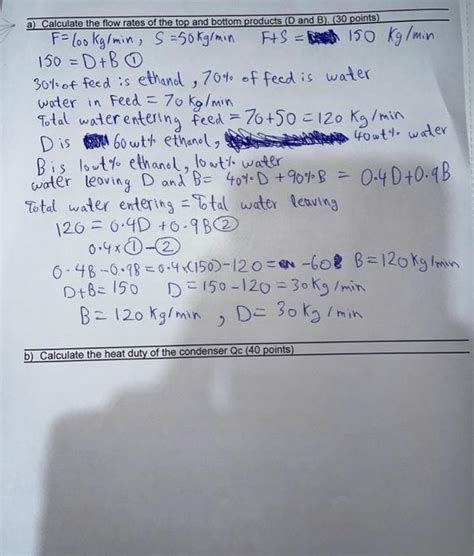 a) Calculate the flow rates of the top and bottom products (D and B). (30 points)
F=100 Kg/min, S=50Kg/min F+S = 150 Kg/min
150 = D+B ①
30% of feed is ethanol, 70% of feed is water
water in Feed = 70 kg/min
Total water entering feed = 70+50 = 120 Kg/min
D is 60wt% ethanol, 40wt% water
B is 10wt% ethanol, 10wt% water
water leaving D and B = 40% D + 90% B = 0.4D+0.9B
Total water entering = Total water leaving
120 = 0.4D + 0.9B ②
0.4x①-②
0.4B-0.9B = 0.4x(150)-120 = -60 B=120kg/min
D+B= 150 D= 150-120 = 30kg/min
B= 120 Kg/min, D= 30Kg/min
b) Calculate the heat duty of the condenser Qc (40 points)